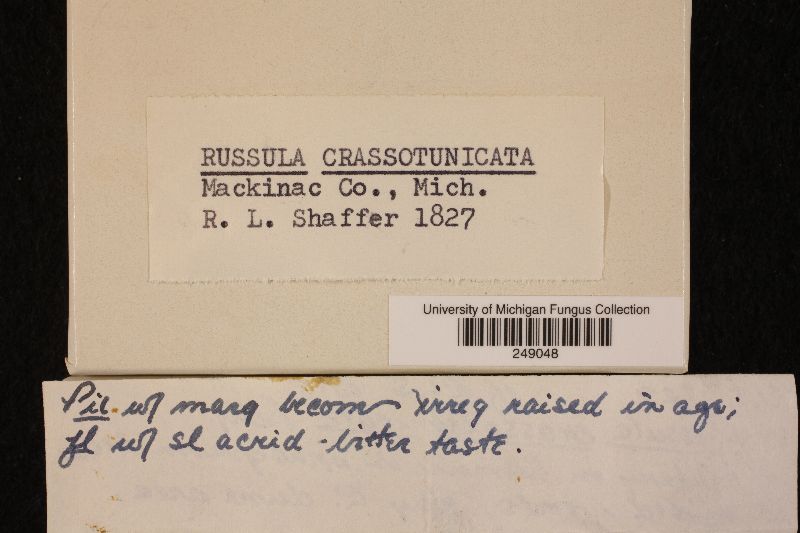 RUSSULA CRASSOTUNICATA
Mackinac Co., Mich.
R. L. Shaffer 1827
University of Michigan Fungus Collection
249048
Pil w/ marg becom irreg raised in age;
fl w/ sl acrid-bitter taste.